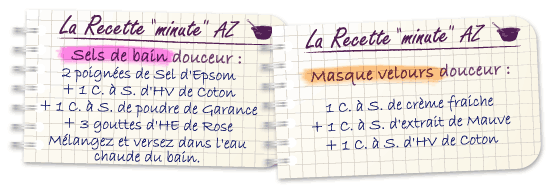 La Recette "minute" AZ
Sels de bain douceur :
2 poignées de Sel d'Epsom
+ 1 C. à S. d'HV de Coton
+ 1 C. à S. de poudre de Garance
+ 3 gouttes d'HE de Rose
Mélangez et versez dans l'eau
chaude du bain.
La Recette "minute" AZ
Masque velours douceur :
1 C. à S. de crème fraiche
+ 1 C. à S. d'extrait de Mauve
+ 1 C. à S. d'HV de Coton